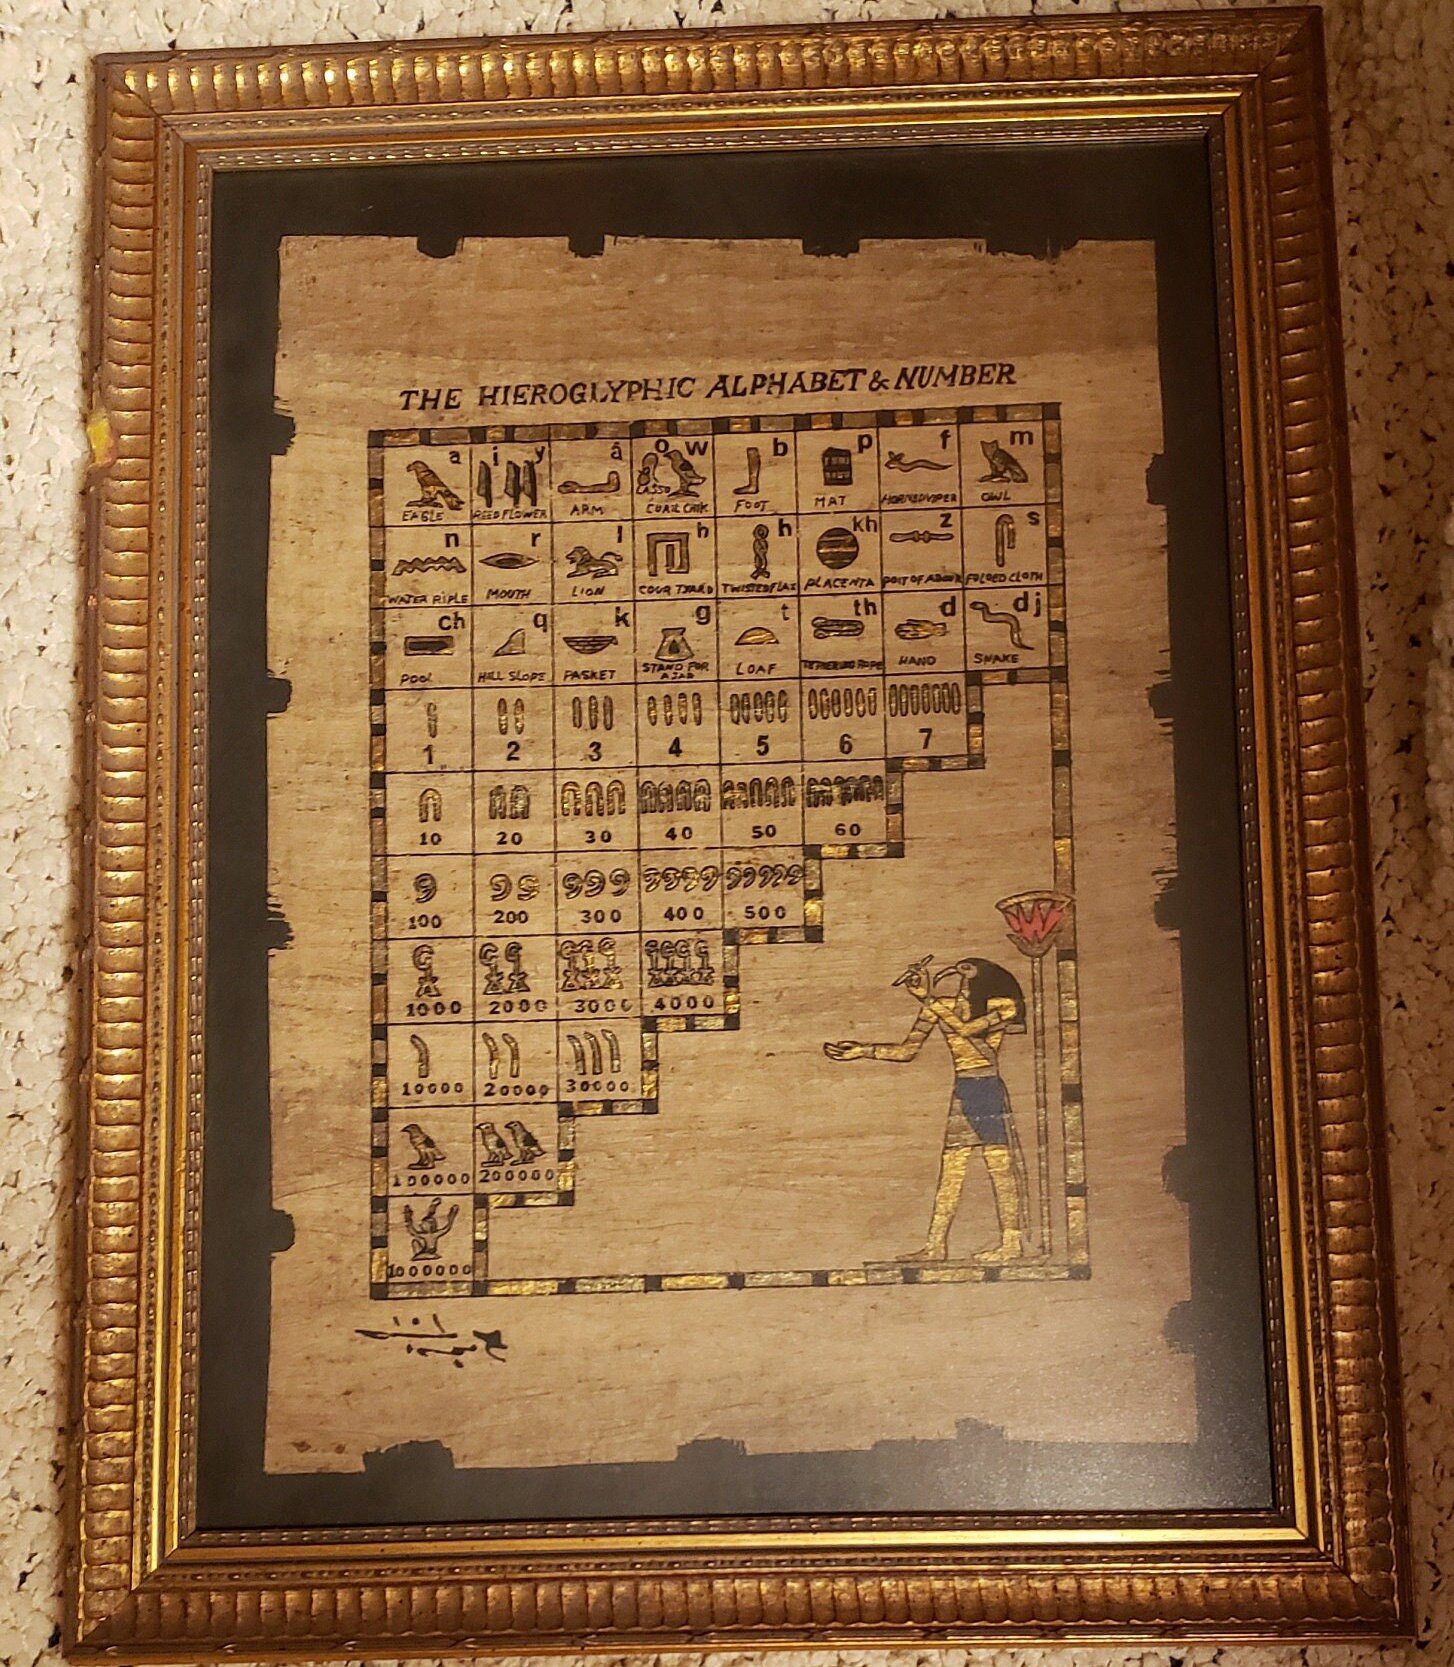 THE HIEROGLYPHIC ALPHABET & NUMBER
a i y á o w b p f m
EAGLE REED FLOWER ARM LASSO CUAIL CHIK FOOT MAT HORNEDVIPER OWL
n r l h h kh z s
WATER RIPLE MOUTH LION COURTYARD TWISTEDFLAX PLACENTA FOLDED CLOTH
ch q k g t th d dj
POOL HILL SLOPE STAND FOR LOAF TETHERING ROPE HAND SNAKE
1 2 3 4 5 6 7
10 20 30 40 50 60
100 200 300 400 500
1000 2000 3000 4000
10000 20000 30000
100000 200000
1000000